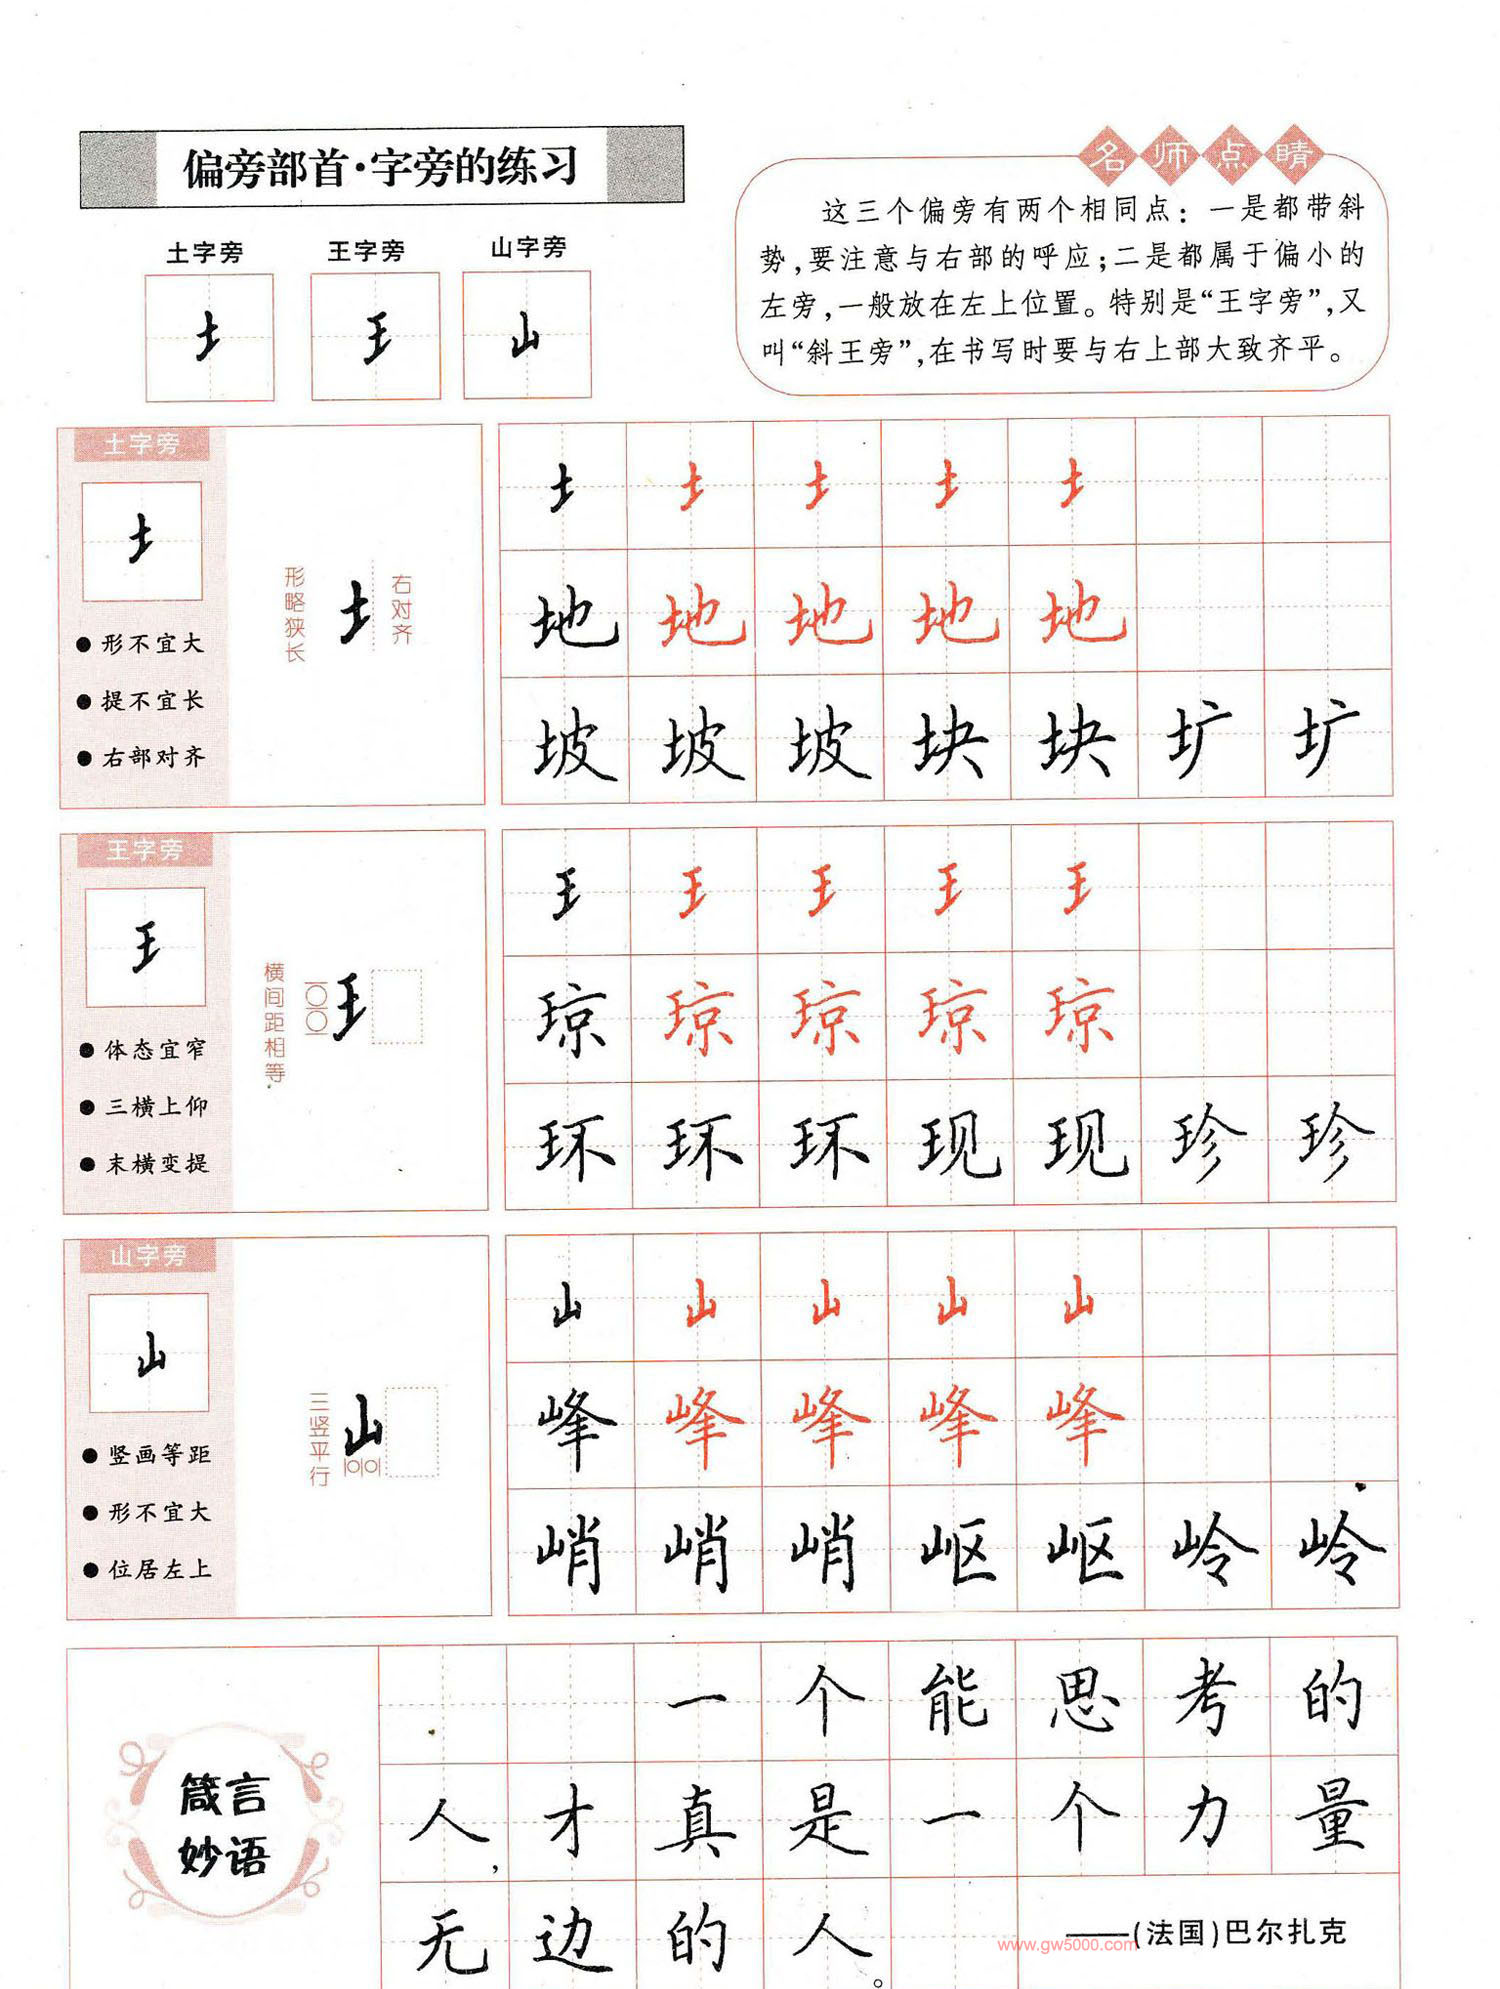 偏旁部首·字旁的练习
名师点睛
这三个偏旁有两个相同点：一是都带斜
势,要注意与右部的呼应;二是都属于偏小的
左旁,一般放在左上位置。特别是“王字旁”,又
叫“斜王旁”,在书写时要与右上部大致齐平。
土字旁 王字旁 山字旁
土 王 山
土字旁
土
●形不宜大
●提不宜长
●右部对齐
形略狭长
土
右对齐
土 土 土 土 土
地 地 地 地 地
坡 坡 坡 块 块 圹 圹
王字旁
王
●体态宜窄
●三横上仰
●末横变提
横间距相等
王
王 王 王 王 王
琼 琼 琼 琼 琼
环 环 环 现 现 珍 珍
山字旁
山
●竖画等距
●形不宜大
●位居左上
三竖平行
山
山 山 山 山 山
峰 峰 峰 峰 峰
峭 峭 峭 岖 岖 岭 岭
箴言
妙语
一个能思考的
人,才真是一个力量
无边的人。
——(法国)巴尔扎克
www.gw5000.com